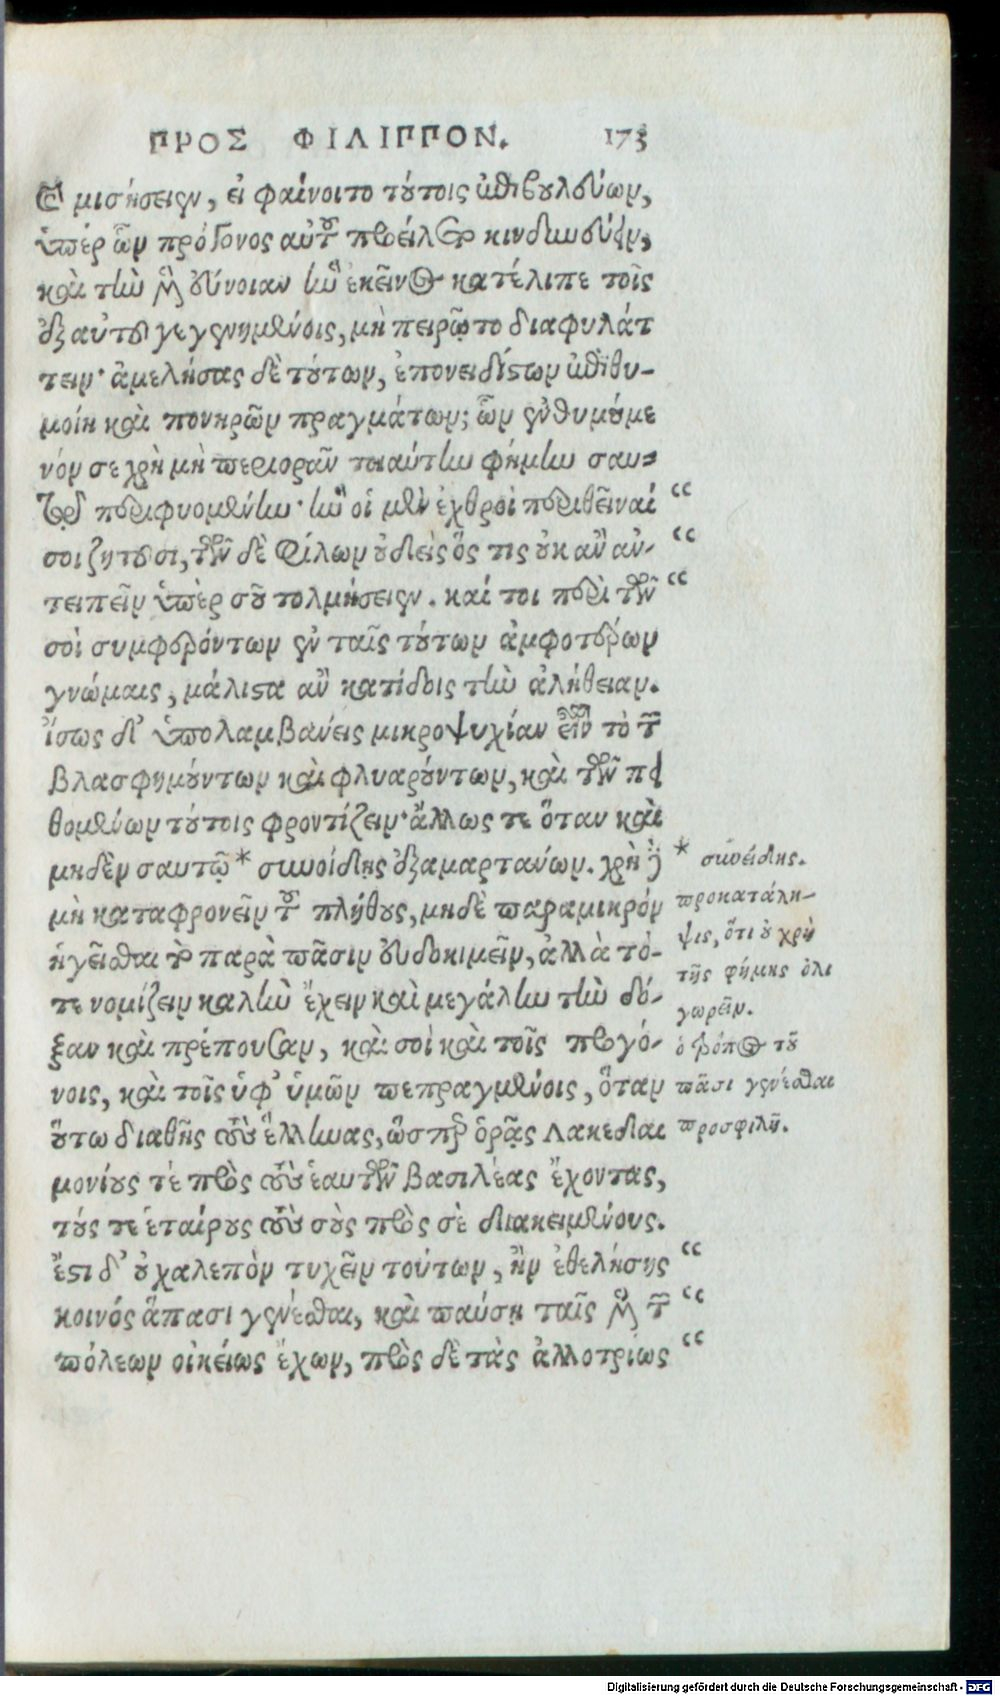 ΠΡΟΣ ΦΙΛΙΠΠΟΝ. 173
καὶ μισήσειεν, εἰ φαίνοιτο τούτοις ἐπιβουλεύων,
ὑπὲρ ὧν πρόγονος αὐτοῦ προείλετο κινδυνεύειν,
καὶ τὴν μὲν εὔνοιαν ἣν ἐκεῖνος κατέλιπε τοῖς
ἐξ αὐτοῦ γεγενημένοις, μὴ πειρῷτο διαφυλάτ
τειν· ἀμελήσας δὲ τούτων, ἐπονειδίστων ἐπιθυ-
μοίη καὶ πονηρῶν πραγμάτων; ὧν ἐνθυμούμε
νόν σε χρὴ μὴ περιορᾶν τοιαύτην φήμην σαυ=
τῷ περιφυομένην· ἣν οἱ μὲν ἐχθροὶ περιθεῖναί “
σοι ζητοῦσι, τῶν δὲ φίλων οὐδεὶς ὅς τις οὐκ ἂν ἀν- “
τειπεῖν ὑπὲρ σοῦ τολμήσειεν. καί τοι περὶ τῶν “
σοὶ συμφερόντων ἐν ταῖς τούτων ἀμφοτέρων
γνώμαις, μάλιστα ἂν κατίδοις τὴν ἀλήθειαν.
ἴσως δ’ ὑπολαμβάνεις μικροψυχίαν εἶναι τὸ τῶν
βλασφημούντων καὶ φλυαρούντων, καὶ τῶν πει
θομένων τούτοις φροντίζειν· ἄλλως τε ὅταν καὶ
μηδὲν σαυτῷ * συνοίδῃς ἐξαμαρτάνων. χρὴ δὲ
μὴ καταφρονεῖν τοῦ πλήθους, μηδὲ παραμικρὸν
ἡγεῖσθαι τὸ παρὰ πᾶσιν εὐδοκιμεῖν, ἀλλὰ τό-
τε νομίζειν καλὴν ἔχειν καὶ μεγάλην τὴν δό-
ξαν καὶ πρέπουσαν, καὶ σοὶ καὶ τοῖς προγό-
νοις, καὶ τοῖς ὑφ’ ὑμῶν πεπραγμένοις, ὅταν
οὕτω διαθῇς τοὺς ἕλληνας, ὥσπερ ὁρᾷς Λακεδαι
μονίους τέ πρὸς τοὺς ἑαυτῶν βασιλέας ἔχοντας,
τούς τε ἑταίρους τοὺς σοὺς πρὸς σὲ διακειμένους.
ἔστι δ’ οὐ χαλεπὸν τυχεῖν τούτων, ἢν ἐθελήσῃς “
κοινός ἅπασι γενέσθαι, καὶ παύσῃ ταῖς μὲν τῶν “
πόλεων οἰκείως ἔχων, πρὸς δὲ τὰς ἀλλοτρίως “
* συνείδης.
προκατάλη-
ψις, ὅτι οὐ χρὴ
τῆς φήμης ὀλι
γωρεῖν.
ὁ τρόπος τοῦ
πᾶσι γενέσθαι
προσφιλῆ.
Digitalisierung gefördert durch die Deutsche Forschungsgemeinschaft - DFG